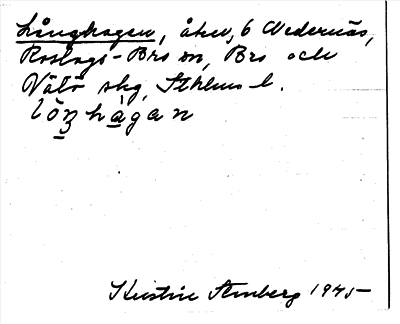 Långhagen, åker, 6 Nedernäs,
Roslags-Bro sn, Bro och
Väto skg, Sthlms l.
löŋhàgan
Kerstin Stenberg 1945